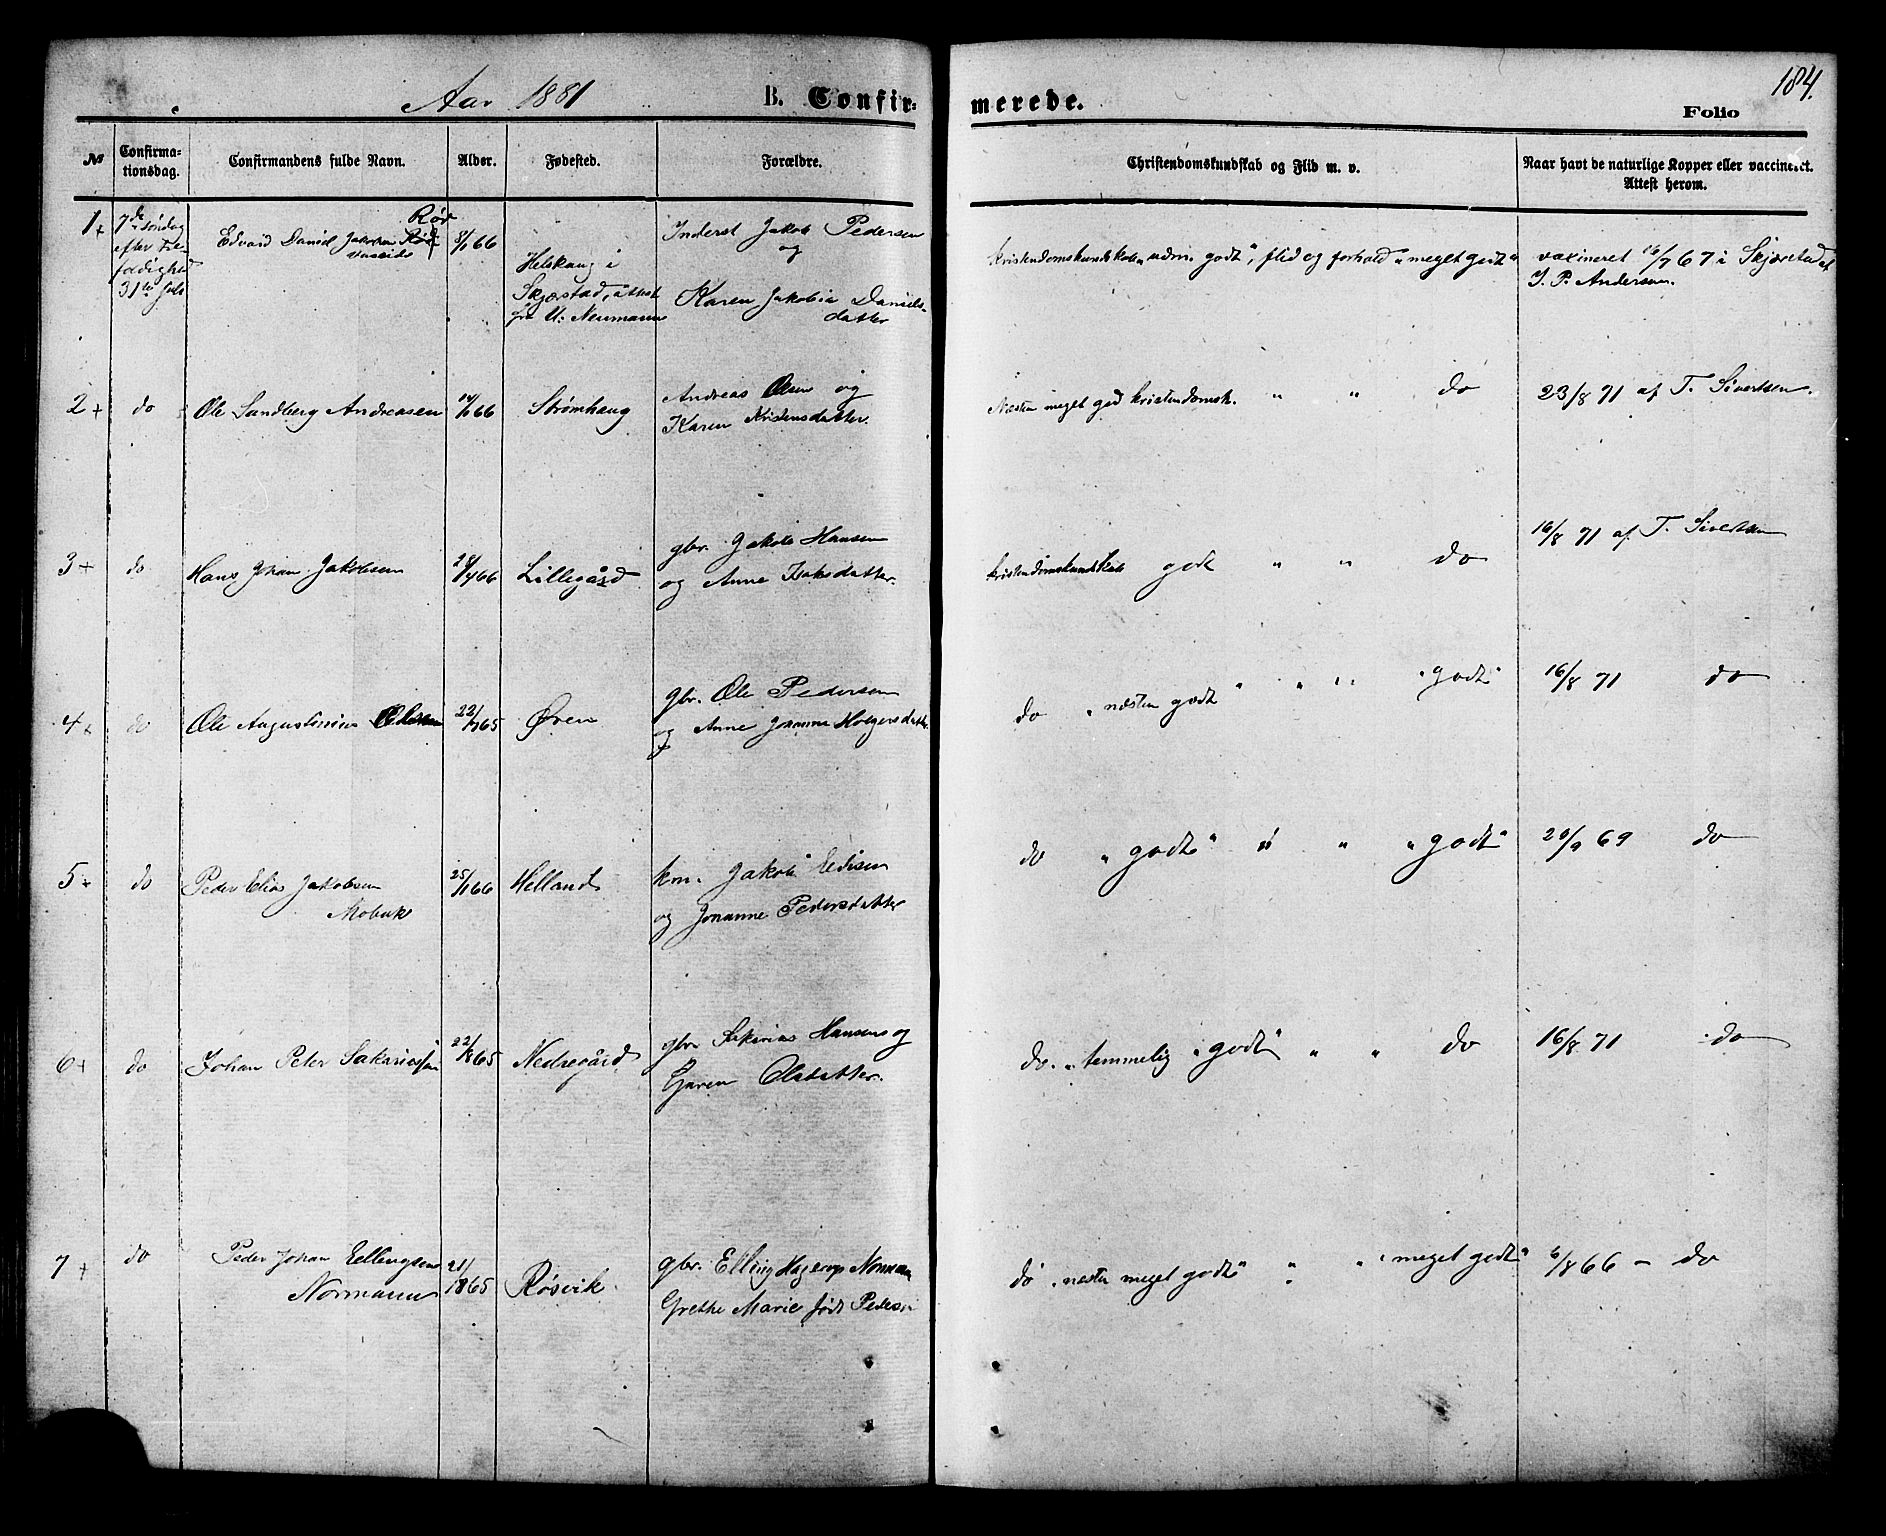 Aar 1881 B. Confir-
merede.
184.
Folio
№ Confirma-
tionsdag. Confirmandens fulde Navn. Alder. Fødested. Forældre. Christendomskundskab og Flid m. v. Naar havt de naturlige Kopper eller vaccineret.
Attest herom.
1 + 7de søndag
efter Tre-
foldighed
31te juli
Edvard Daniel Jakobsen Røv
8/1 66
Helskaug i
Skjerstad, attest
fra U. Neumann
Inderst Jakob Pedersen
og
Karen Jakobia Daniels-
datter
kristendomskundskab „udm. godt“, flid og forhold „meget godt“
vaxineret 16/7 67 i Skjerstad af
J. P. Andersen.
2 + do Ole Sandberg Andreasen 14/1 66 Strømhaug
Andreas Olsen og
Karen Kristensdatter.
Næsten meget god kristendomsk. " " do
23/8 71 af T. Sivertsen.
3 + do Hans Johan Jakobsen 28/4 66 Lillegård
gbr. Jakob Hansen
og Anne Isaksdatter.
kristendomskundskab godt " " do
16/8 71 af T. Sivertsen
4 + do Ole Augustinius Olsen 22/9 65 Øren
gbr. Ole Pedersen
og Anne Johanna Holgersdatter.
do „næsten godt“ " " „godt“
16/8 71 do
5 + do Peder Elias Jakobsen
Mobæk
25/1 66 Helland
km. Jakob Edisen
og Johanne Pedersdatter
do „godt“ " " „godt“
29/9 69 do
6 + do Johan Peter Sakariassen 22/8 65 Nedregård
gbr. Sakarias Hansen og
Garen Olsdatter.
do „temmelig godt“ " " do
16/8 71 do
7 + do Peder Johan Ellingsen
Normann
21/ 65 Røsvik
gbr. Elling Hagerup Normann
Grethe Marie født Pedersen
do „næsten meget godt“ " " „meget godt“
6/8 66 – do